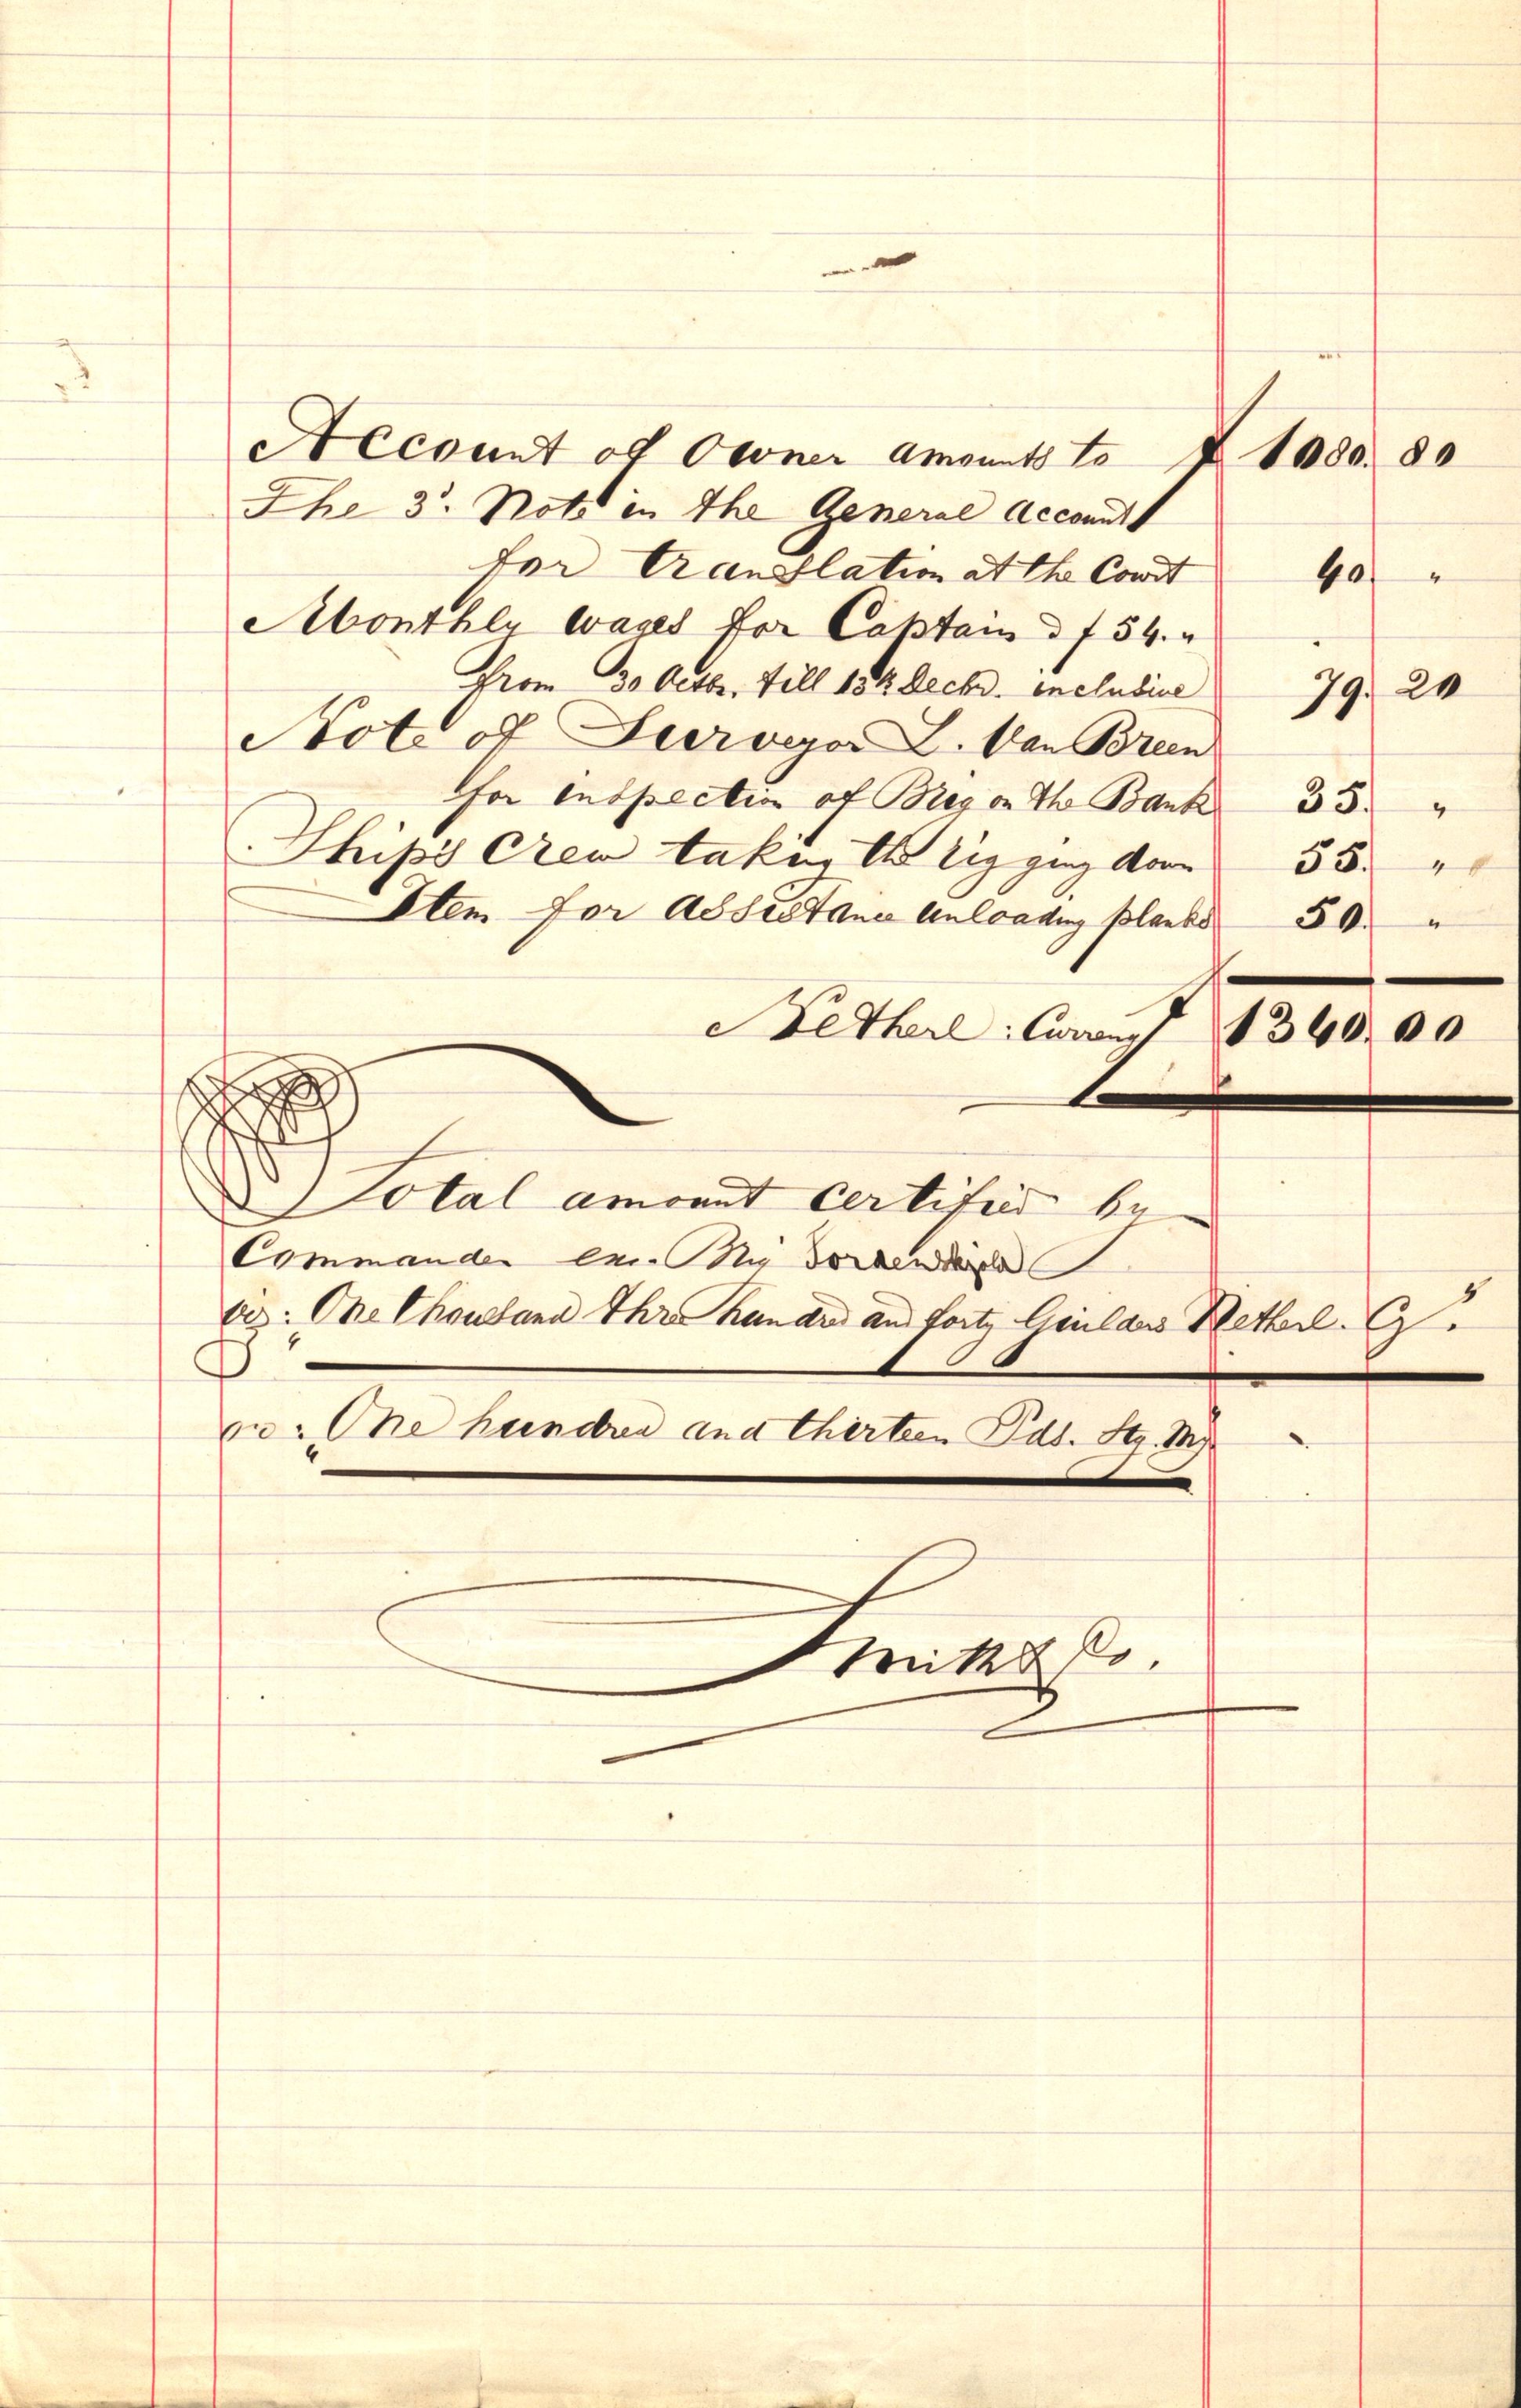 Account of Owner amounts to f 1080. 80
The 3d. Note in the General Account
for translation at the Court 40. "
Monthly wages for Captain à f 54. "
from 30 Octbr. till 13th Decbr. inclusive 79. 20
Note of Surveyor L. Van Breen
for inspection of Brig on the Bank 35. "
Ship's Crew taking the rigging down 55. "
Item for assistance unloading planks 50. "
Netherl: Currency f 1340. 00
Total amount certified by
Commander
viz: One thousand three hundred and forty Guilders Netherl. Cy.
or: One hundred and thirteen Pds. Stg. My
Smith & Co.